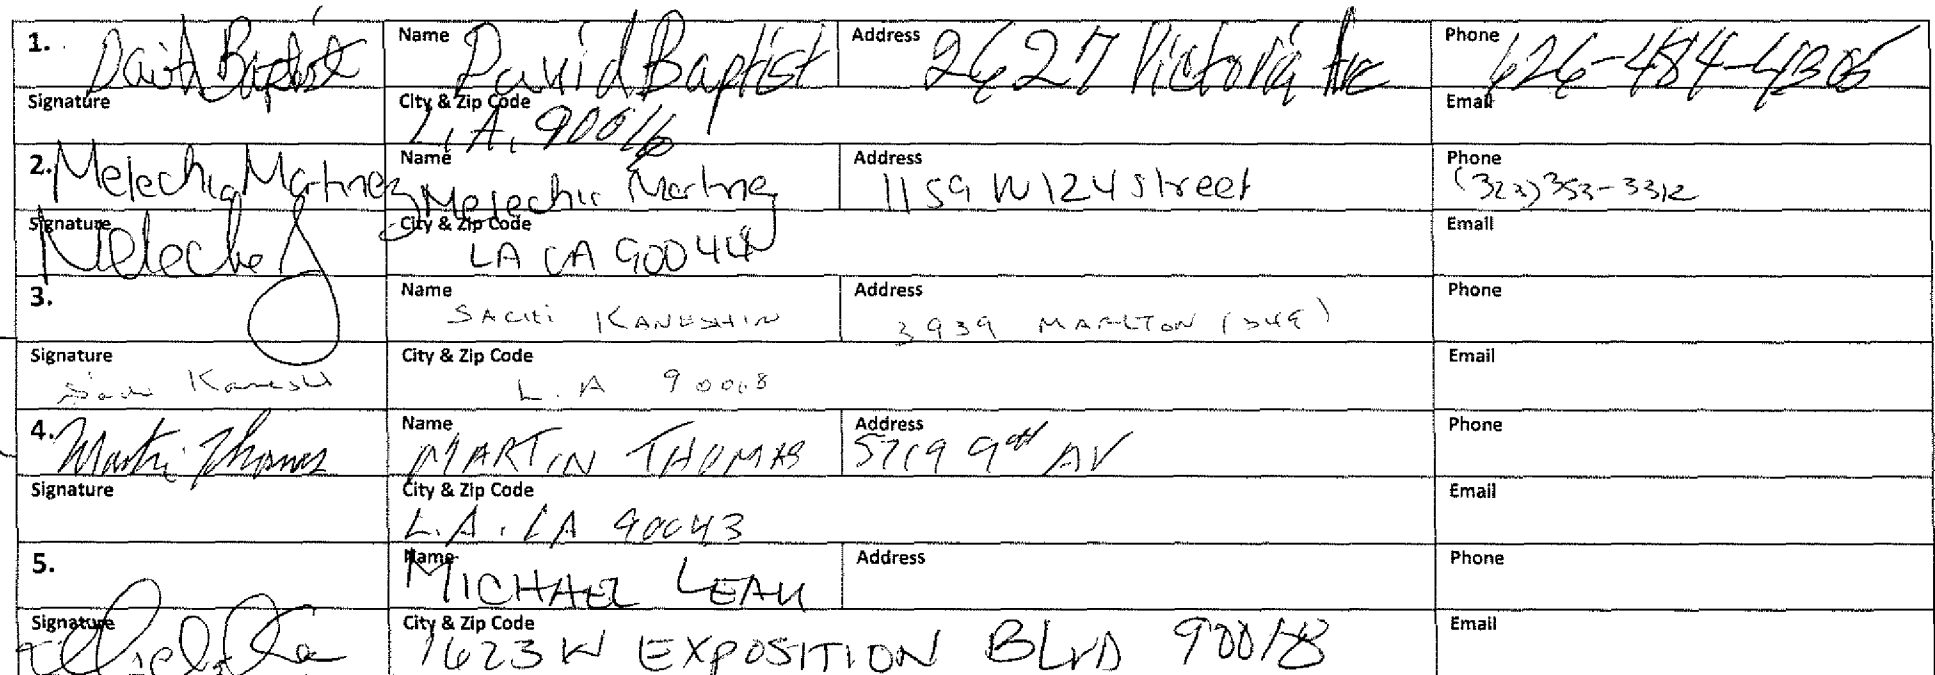 1. David Baptist Name David Baptist Address 2627 Victoria Ave Phone 626-484-4306
Signature City & Zip Code L.A. 90016 Email
2. Melechia Martinez Name Melechia Martinez Address 1159 W 124 street Phone (323) 353-3312
Signature City & Zip Code LA CA 90044 Email
3. Name KANESHIN Address 3939 MARLTON (349) Phone
Signature City & Zip Code L.A 90008 Email
4. Martin Thomas Name MARTIN THOMAS Address 5719 9th AV Phone
Signature City & Zip Code L.A. CA 90043 Email
5. Name MICHAEL Address Phone
Signature City & Zip Code 1623 W EXPOSITION BLVD 90018 Email